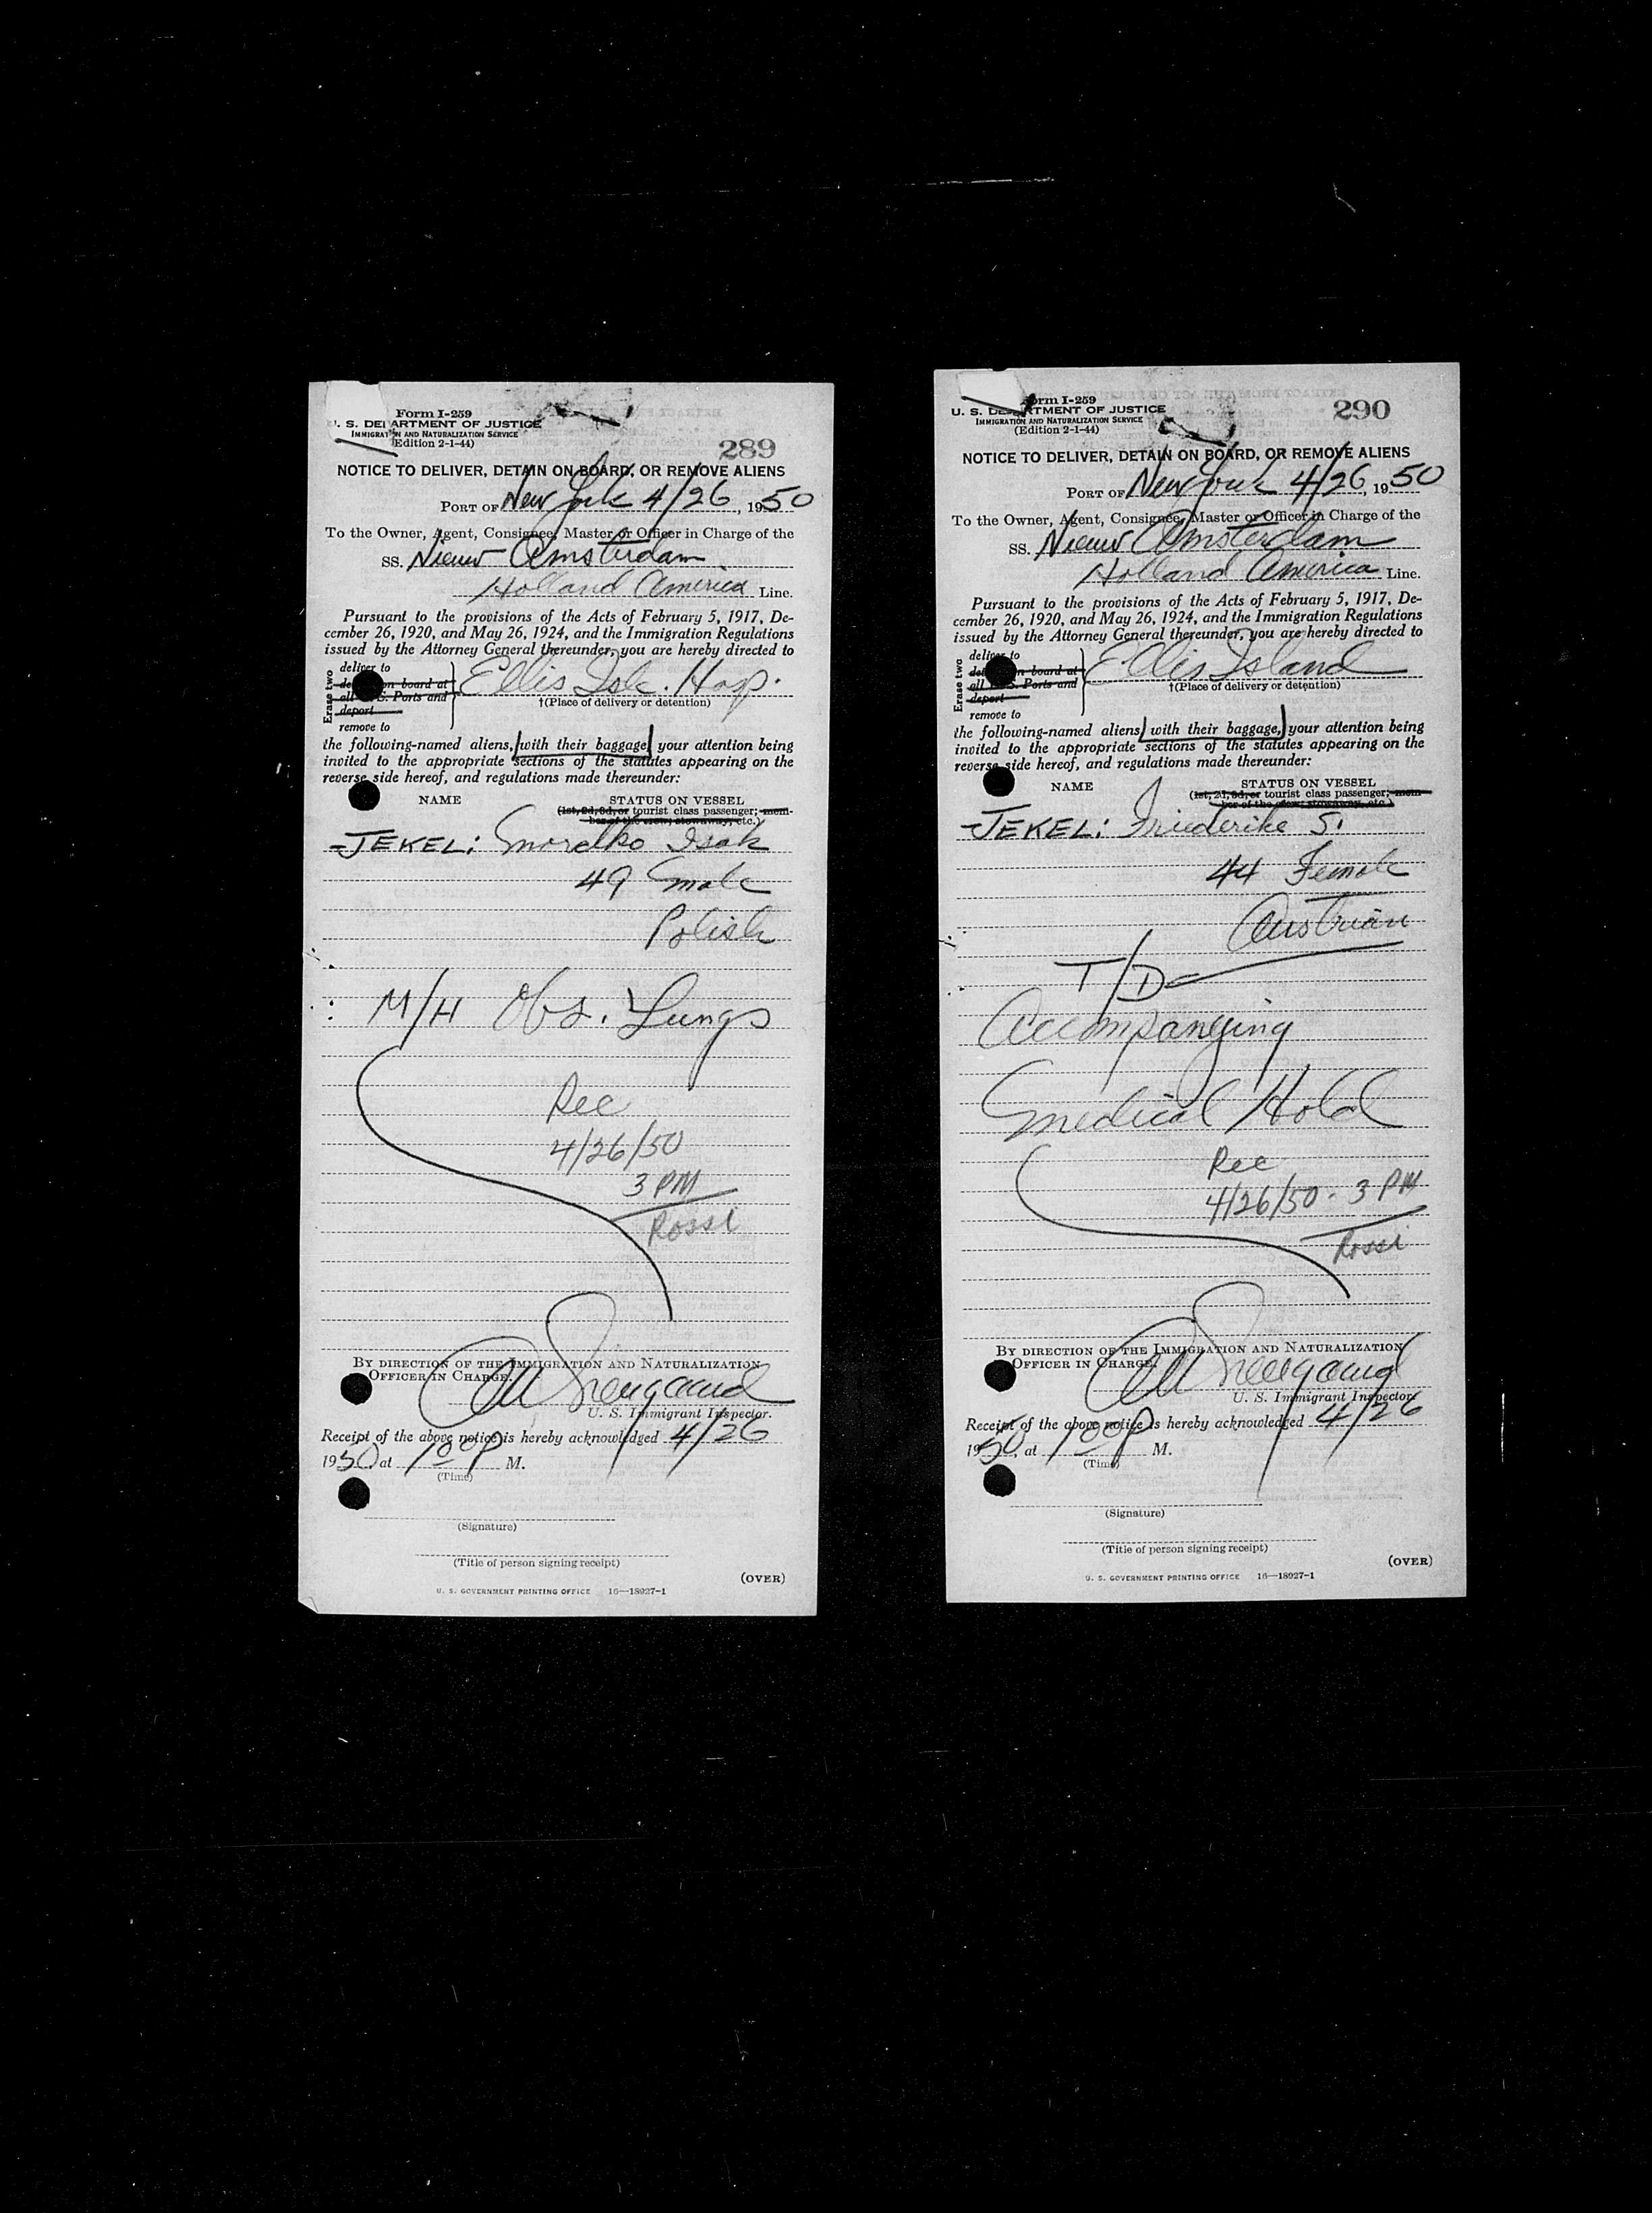 Form I-259
U. S. DEPARTMENT OF JUSTICE
IMMIGRATION AND NATURALIZATION SERVICE
(Edition 2-1-44)
289
NOTICE TO DELIVER, DETAIN ON BOARD, OR REMOVE ALIENS
PORT OF New York 4/26, 1950
To the Owner, Agent, Consignee, Master or Officer in Charge of the
SS. Nieuw Amsterdam
Holland America Line.
Pursuant to the provisions of the Acts of February 5, 1917, De-
cember 26, 1920, and May 26, 1924, and the Immigration Regulations
issued by the Attorney General thereunder, you are hereby directed to
Erase two
deliver to
de on board at
all S. Ports and
deport
remove to
Ellis Isl. Hosp.
†(Place of delivery or detention)
the following-named aliens, with their baggage, your attention being
invited to the appropriate sections of the statutes appearing on the
reverse side hereof, and regulations made thereunder:
NAME STATUS ON VESSEL
(1st, 2d, 3d, or tourist class passenger; mem-
ber of the crew; stowaway, etc.)
JEKEL: Isak
49 male
Polish
M/H Obs. Lungs
Rec
4/26/50
3 PM
Rossi
BY DIRECTION OF THE IMMIGRATION AND NATURALIZATION
OFFICER IN CHARGE.
U. S. Immigrant Inspector.
Receipt of the above notice is hereby acknowledged 4/26
1950, at 1 00 P M.
(Time)
(Signature)
(Title of person signing receipt)
(OVER)
U. S. GOVERNMENT PRINTING OFFICE 16—18927-1
Form I-259
U. S. DEPARTMENT OF JUSTICE
IMMIGRATION AND NATURALIZATION SERVICE
(Edition 2-1-44)
290
NOTICE TO DELIVER, DETAIN ON BOARD, OR REMOVE ALIENS
PORT OF New York 4/26, 1950
To the Owner, Agent, Consignee, Master or Officer in Charge of the
SS. Nieuw Amsterdam
Holland America Line.
Pursuant to the provisions of the Acts of February 5, 1917, De-
cember 26, 1920, and May 26, 1924, and the Immigration Regulations
issued by the Attorney General thereunder, you are hereby directed to
Erase two
deliver to
det n board at
all S. Ports and
deport
remove to
Ellis Island
†(Place of delivery or detention)
the following-named aliens, with their baggage, your attention being
invited to the appropriate sections of the statutes appearing on the
reverse side hereof, and regulations made thereunder:
NAME STATUS ON VESSEL
(1st, 2d, 3d, or tourist class passenger; mem-
ber of the crew; stowaway, etc.)
JEKEL: Friederike S.
44 Female
Austrian
T/D
Accompanying
Medical Hold
Rec
4/26/50 - 3 PM
Rossi
BY DIRECTION OF THE IMMIGRATION AND NATURALIZATION
OFFICER IN CHARGE.
U. S. Immigrant Inspector.
Receipt of the above notice is hereby acknowledged 4/26
1950, at 1 00 P M.
(Time)
(Signature)
(Title of person signing receipt)
(OVER)
U. S. GOVERNMENT PRINTING OFFICE 16—18927-1